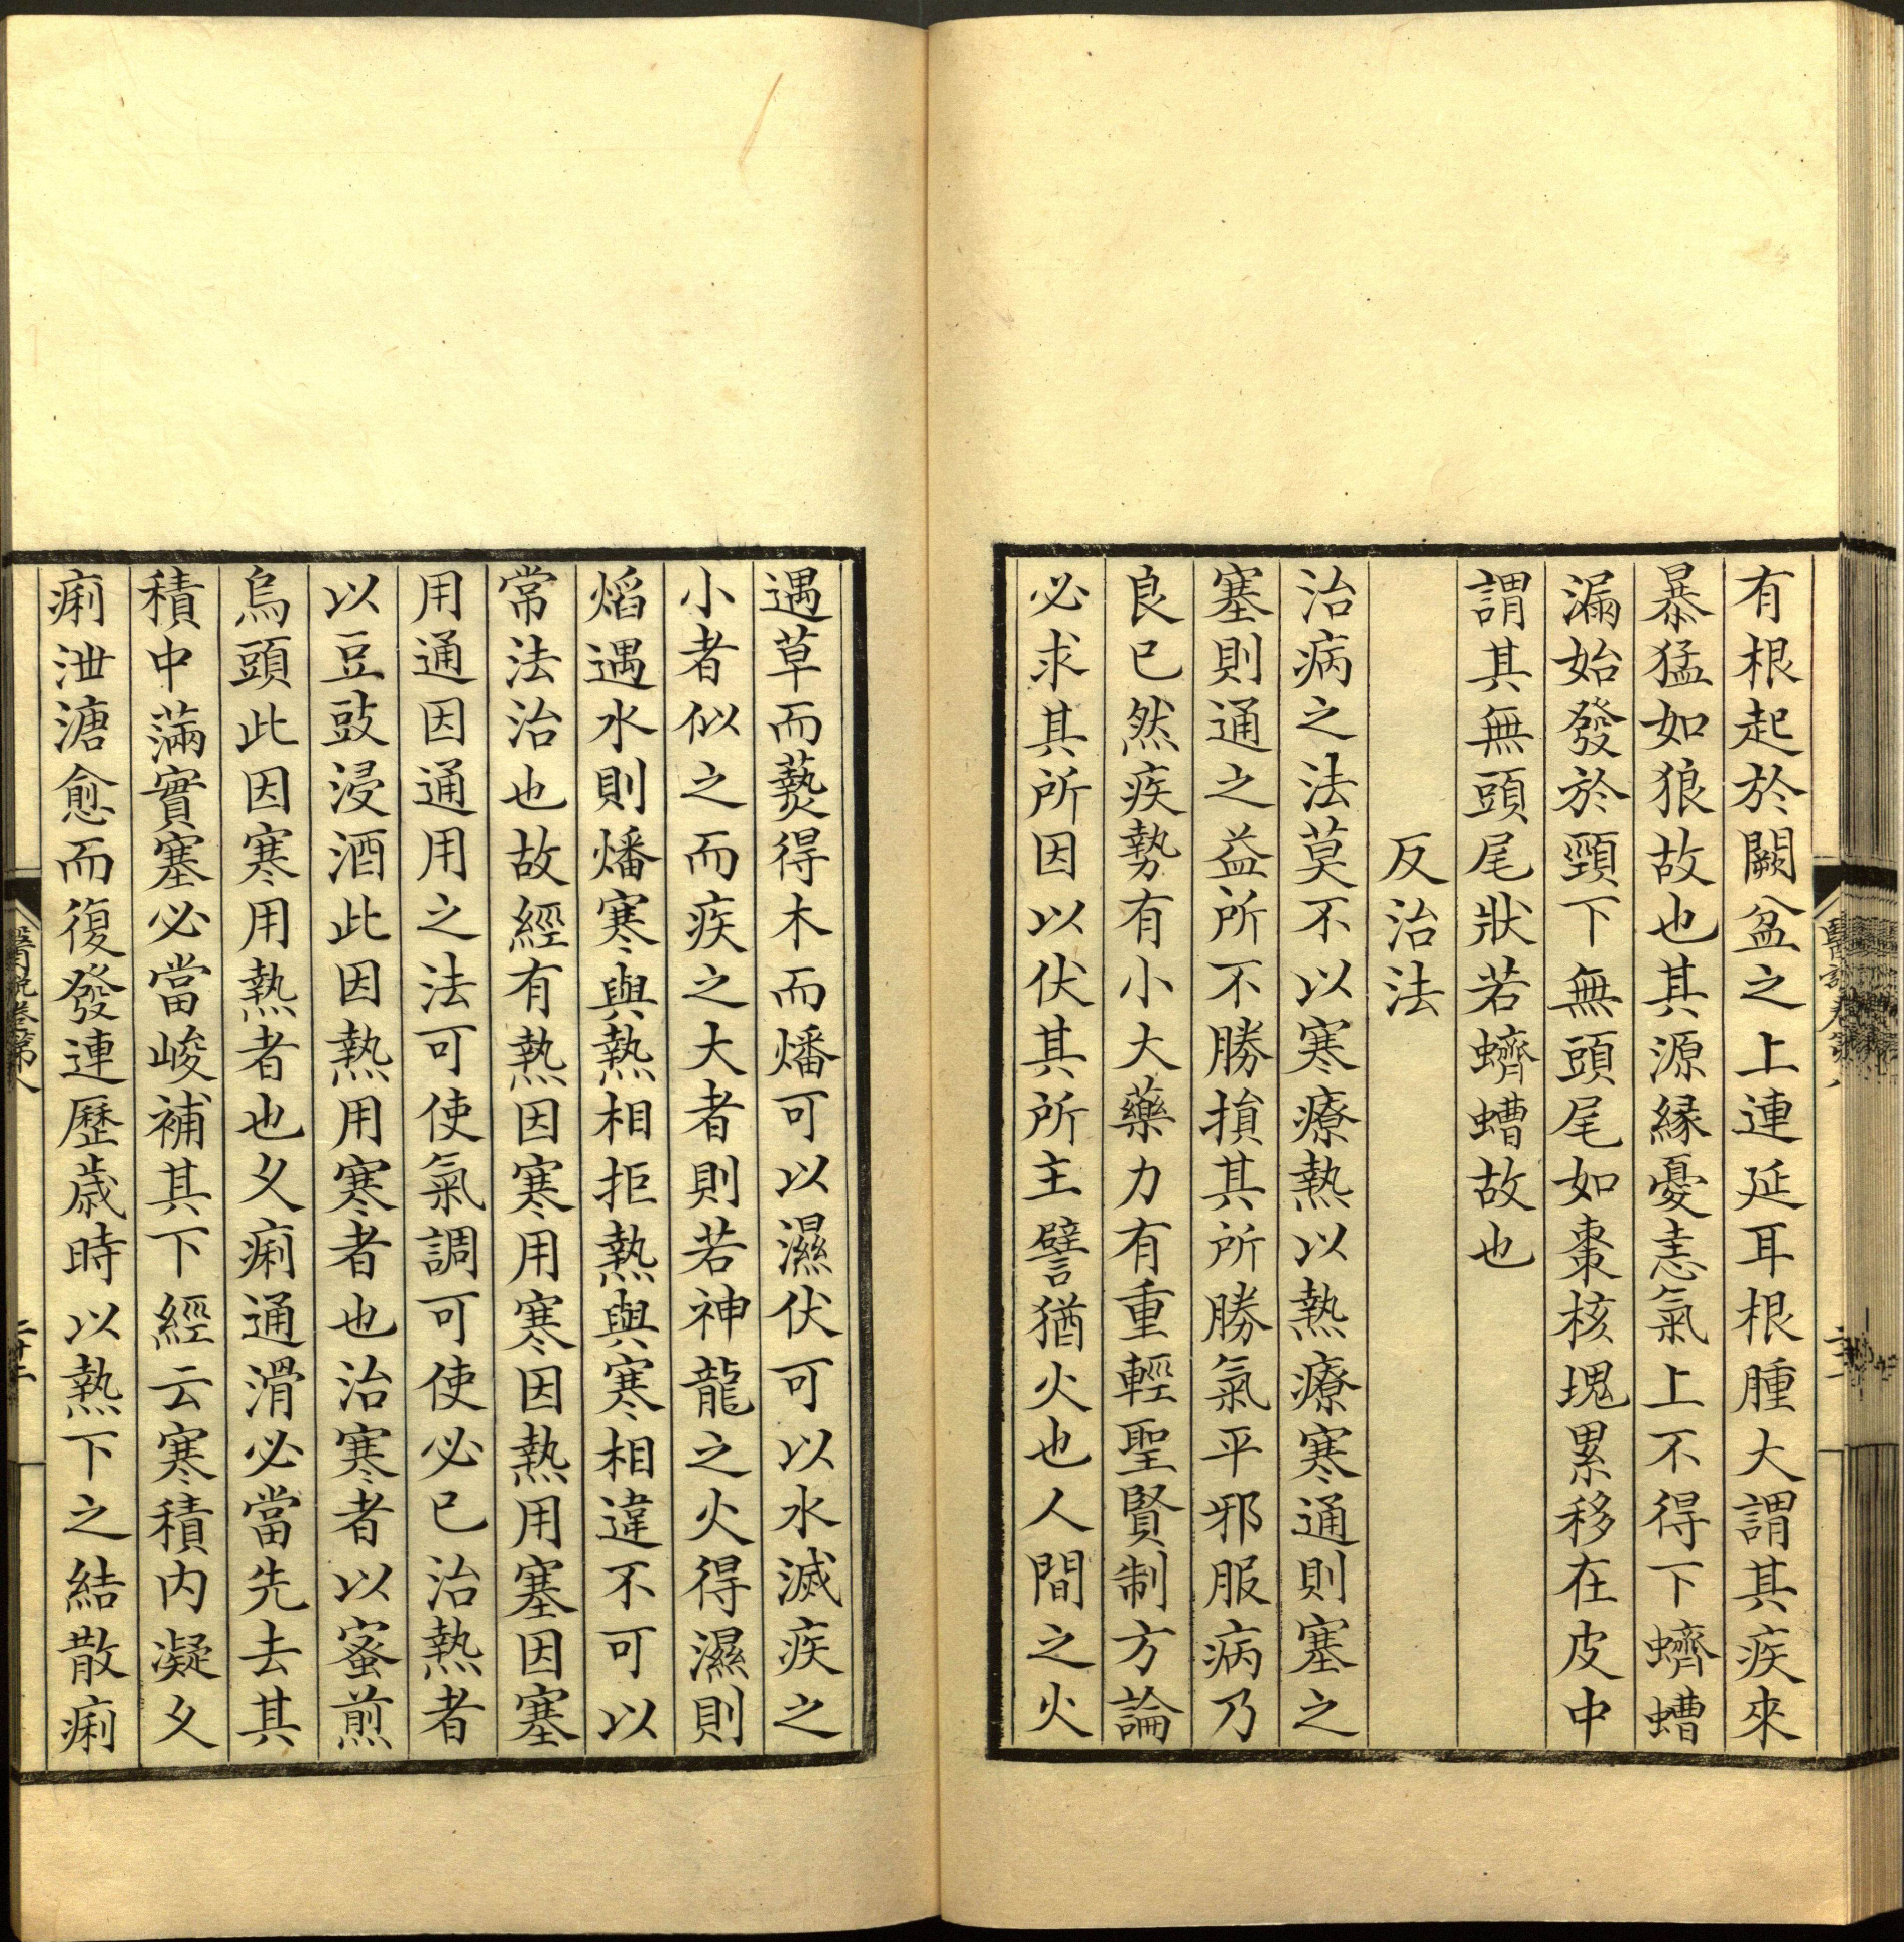 有根起於闕盆之上連延耳根腫大謂其疾來
暴猛如狼故也其源縁憂恚氣上不得下蠐螬
漏始發於頸下無頭尾如棗核塊累移在皮中
謂其無頭尾狀若蠐螬故也
反治法
治病之法莫不以寒療熱以熱療寒通則塞之
塞則通之益所不勝損其所勝氣平邪服病乃
良已然疾勢有小大藥力有重輕聖賢制方論
必求其所因以伏其所主譬猶火也人間之火
遇草而爇得木而燔可以濕伏可以水滅疾之
小者似之而疾之大者則若神龍之火得濕則
熖遇水則燔寒與熱相拒熱與寒相違不可以
常法治也故經有熱因寒用寒因熱用塞因塞
用通因通用之法可使氣調可使必已治熱者
以豆豉浸酒此因熱用寒者也治寒者以蜜煎
烏頭此因寒用熱者也久痢通滑必當先去其
積中滿實塞必當峻補其下經云寒積内凝久
痢泄溏愈而復發連歷歲時以熱下之結散痢
醫說卷第八